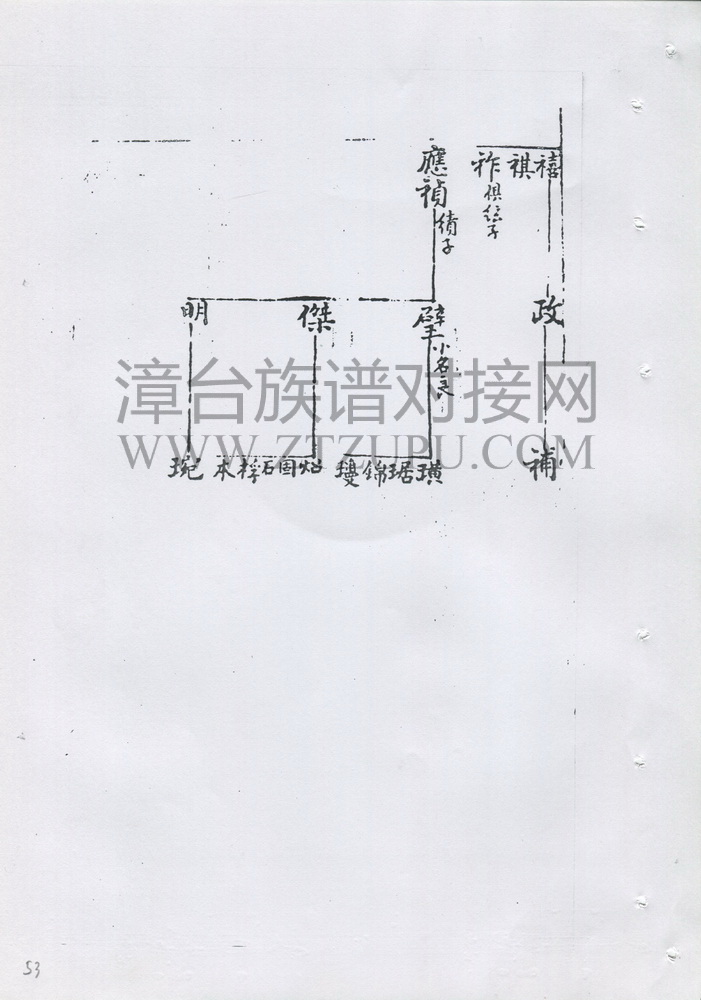 禧祺祚
俱絃子
應禎
績子
政
璧
小名良
傑
明
補
璜琚錦
固石桴本
琬
漳台族谱对接网
WWW.ZTZUPU.COM
53